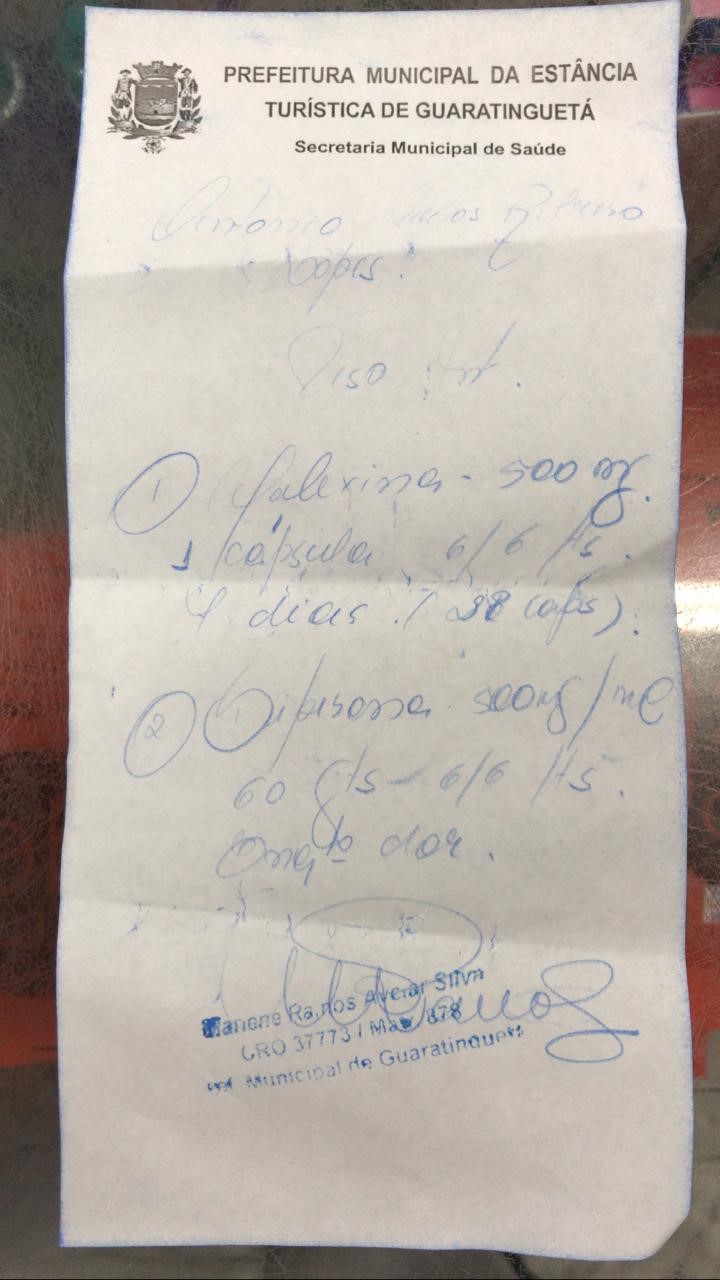 PREFEITURA MUNICIPAL DA ESTÂNCIA
TURÍSTICA DE GUARATINGUETÁ
Secretaria Municipal de Saúde
Antonio Ribeiro
Lopes.
Uso Int.
1 Cefalexina - 500 mg.
1 cápsula 6/6 hs.
7 dias. (28 caps).
2 Dipirona 500mg/ml
60 gts - 6/6 hs.
Enqto dor.
Ramos Avelar Silva
CRO 37773 / Mat.
Municipal de Guaratinguetá